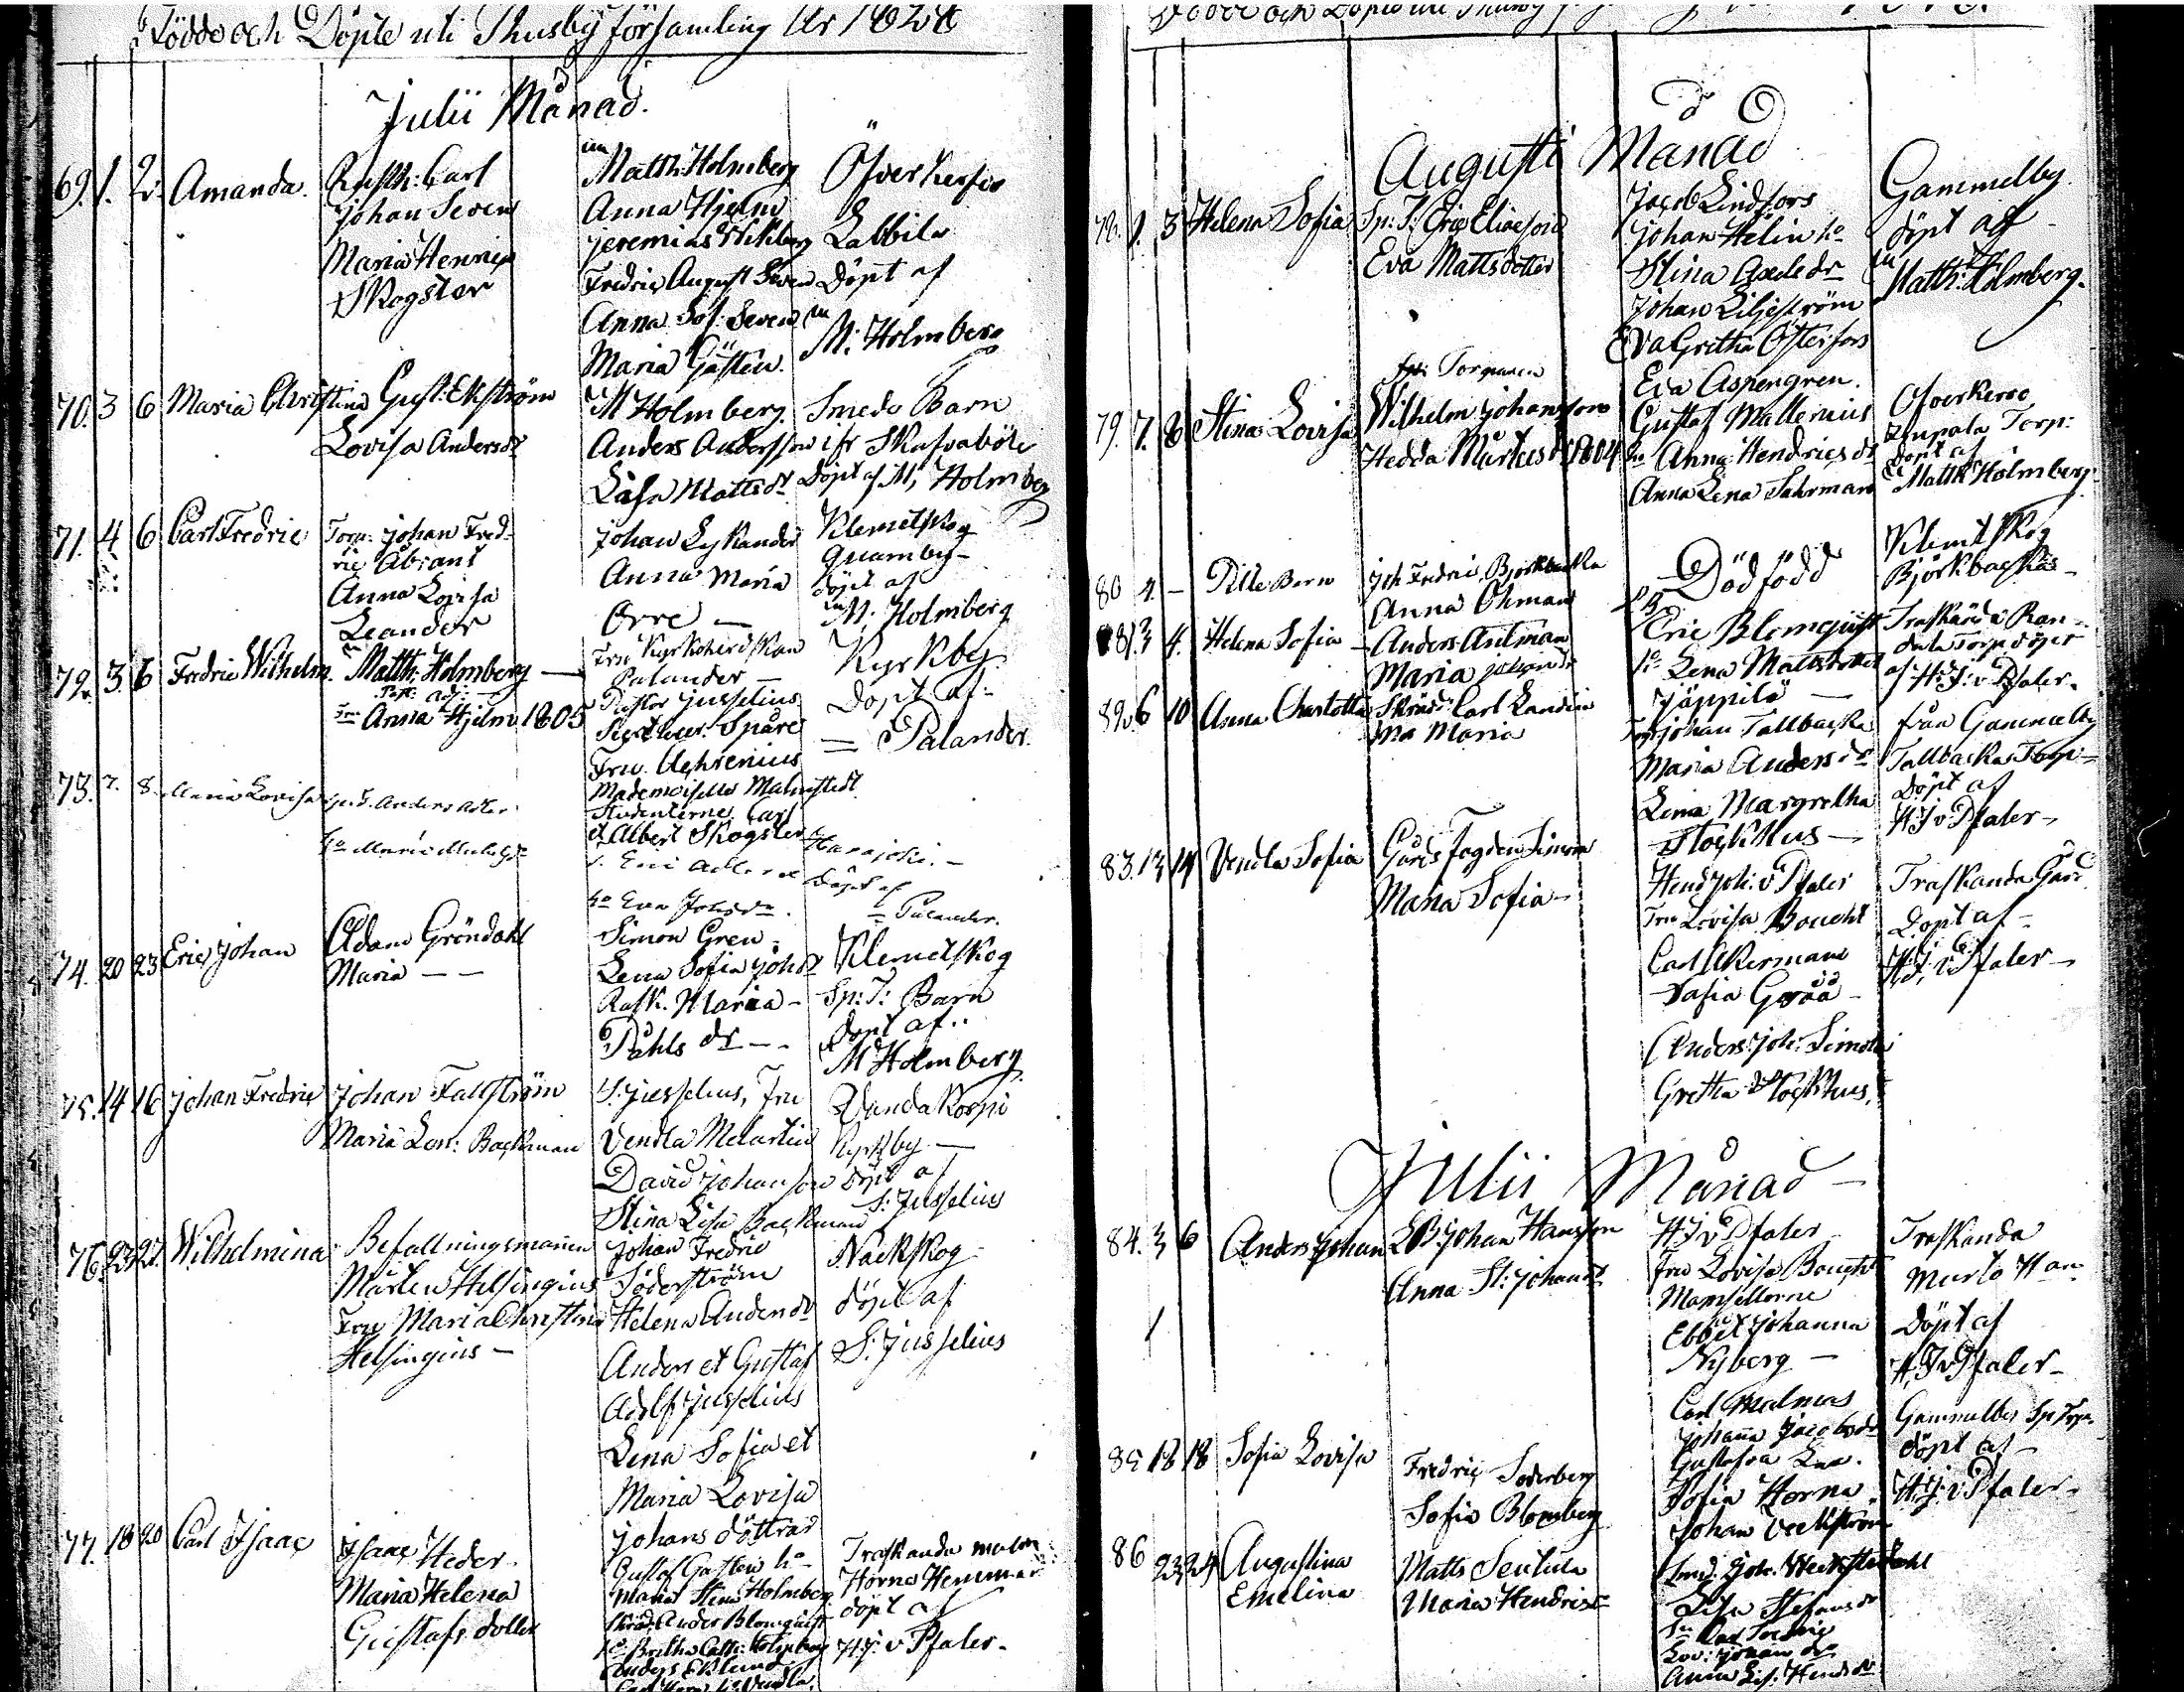 Födde och Döpte uti Thusby församling År 1828
Julii Månad.
69. 1. 2. Amanda.
Rusth: Carl
Johan Seven
Maria Henric
Skogster
Matth: Holmberg
Anna Hjelm
Jeremias
Fredric August Seven
Anna Sof: Seven
Maria Gästen.
Öfverkervo
Labbila
Döpt af
M: Holmberg
70. 3 6 Maria Christina
Gust: Ekström
Lovisa Andersdr
M Holmberg.
Anders Andersson
Caisa Mattsdr
Smeds Barn
ifr Skafvaböle
Döpt af M, Holmberg
71. 4 6 Carl Fredric
Torp: Johan Fred-
ric Åbrant
Anna Lovisa
Leander
Johan Lykander
Anna Maria
Orre —
Klemetskog
Quarnby-
döpt af
M. Holmberg
72. 3. 6 Fredric Wilhelm.
Matth: Holmberg —
Past: adj:
Anna Hjelm 1805
Fru Kyrkoherdskan
Palander —
Pastor Jusselius
Spåre
Fru Wehrenius
Mademoiselle Malmstedt
Studenterne Carl
et Albert Skogster
Kyrkby.
Döpt af-
= Palander.
73. 7. 8. Maria Lovisa
Anders Adler
Eric Adler
ho Eva Johsdr.
Harajoki. —
Döpt af
= Palander.
74. 20 23 Eric Johan
Adam Gröndahl
Maria — —
Simon Gren -
Lena Sofia Johsdr
Rusth. Maria -
Påhls dr — -
Klemetskog
Sp: T: Barn
döpt af..
M Holmberg
75. 14 16 Johan Fredric
Johan Fallström
Maria Lov: Backman
S: Jusselius, Fru
Vendla Melartin
David Johansson
Stina Lisa Backman
Kyrkby —
döpt af
S: Jusselius
76. 23 27. Wilhelmina
Befallningsmannen
Mårten Helsingius
Fru Maria Christina
Helsingius —
Johan Fredric
Söderström
Helena Andersdr
Anders et Gustaf
Adolf Jusselius
Lena Sofia et
Maria Lovisa
Johans döttrar
Nackskog
döpt af
S: Jusselius
77. 18 20 Carl Isaac
Isaac Heder.
Maria Helena
Gustafs dotter
Gustaf Gasten ho
Maria Stina Holmberg
Skräd: Anders Blomquist
ho Britha Cath: Holmberg
Anders Eklund
Träskanda malm
Horns Hemman
döpt af
H: J: v Pfaler.
Augusti Månad
78. 1. 3 Helena Sofia
Sp: T: Eric Eliæson
Eva Mattsdotter
Jacob Lindfors
Johan Helin ho
Stina Axeledr
Johan Liljeström
Eva Gretha Österfors
Gammelby
döpt af
Matth: Holmberg.
79. 7. 8 Stina Lovisa
Wilhelm Johansson
Hedda Markusdr 1804
Eva Aspengren.
Gustaf Mallenius
ho Anna Hendricsdr
Anna Lena Fahrman
Ofverkervo
Torp:
döpt af
Matth: Holmberg
80 4. — Pilte Barn
Joh Fredric Björkbacka
Anna Öhman
Dödfödd
Klemetskog
Björkbackas —
81. 3 4. Helena Sofia —
Anders Ahlman
Maria Johansdr
Eric Blomquist
ho Lena Mattsdotter
Jäppilä —
Träskanda
Torp döpt
af H: J: v Pfaler.
82. 6 10 Anna Charlotta
Skrädd: Carl Landin
Maria
Johan Tallbacka
Maria Andersdr
Lena Margretha
Stockhus —
från Gammelby
Tallbacka Torp —
Döpt af
H J v Pfaler —
83. 13 14 Vendla Sofia
Gårds Fogden Simon
Maria Sofia —
Hend Joh: v Pfaler
Fru Lovisa Boucht
Carl Åkerman
Sofia Gråå
Anders Joh: Simola
Gretha Stockhus.
Träskanda Gård
Döpt af —
H: J: v Pfaler —
Julii Månad —
84. 3 6 Anders Johan
Johan Hansson
Anna St: Johansdr
H J v Pfaler
Fru Lovisa Boucht
Mamsellerne
Ebba et Johanna
Nyberg —
Carl Malmas
Träskanda
Döpt af
H, J v Pfaler —
85 18 18 Sofia Lovisa
Fredric Söderberg
Sofia Blomberg
Johanna Jacobsdr
Sofia Horna
Johan Veckström
Gammelby Sp Torp.
döpt af —
H: J: v Pfaler —
86 23 24 Augustina
Emelina
Matts Seutula
Maria Hendricsdr
Lisa Stefansdr
Lov: Johan dr
Anna Lis: Hendsdr